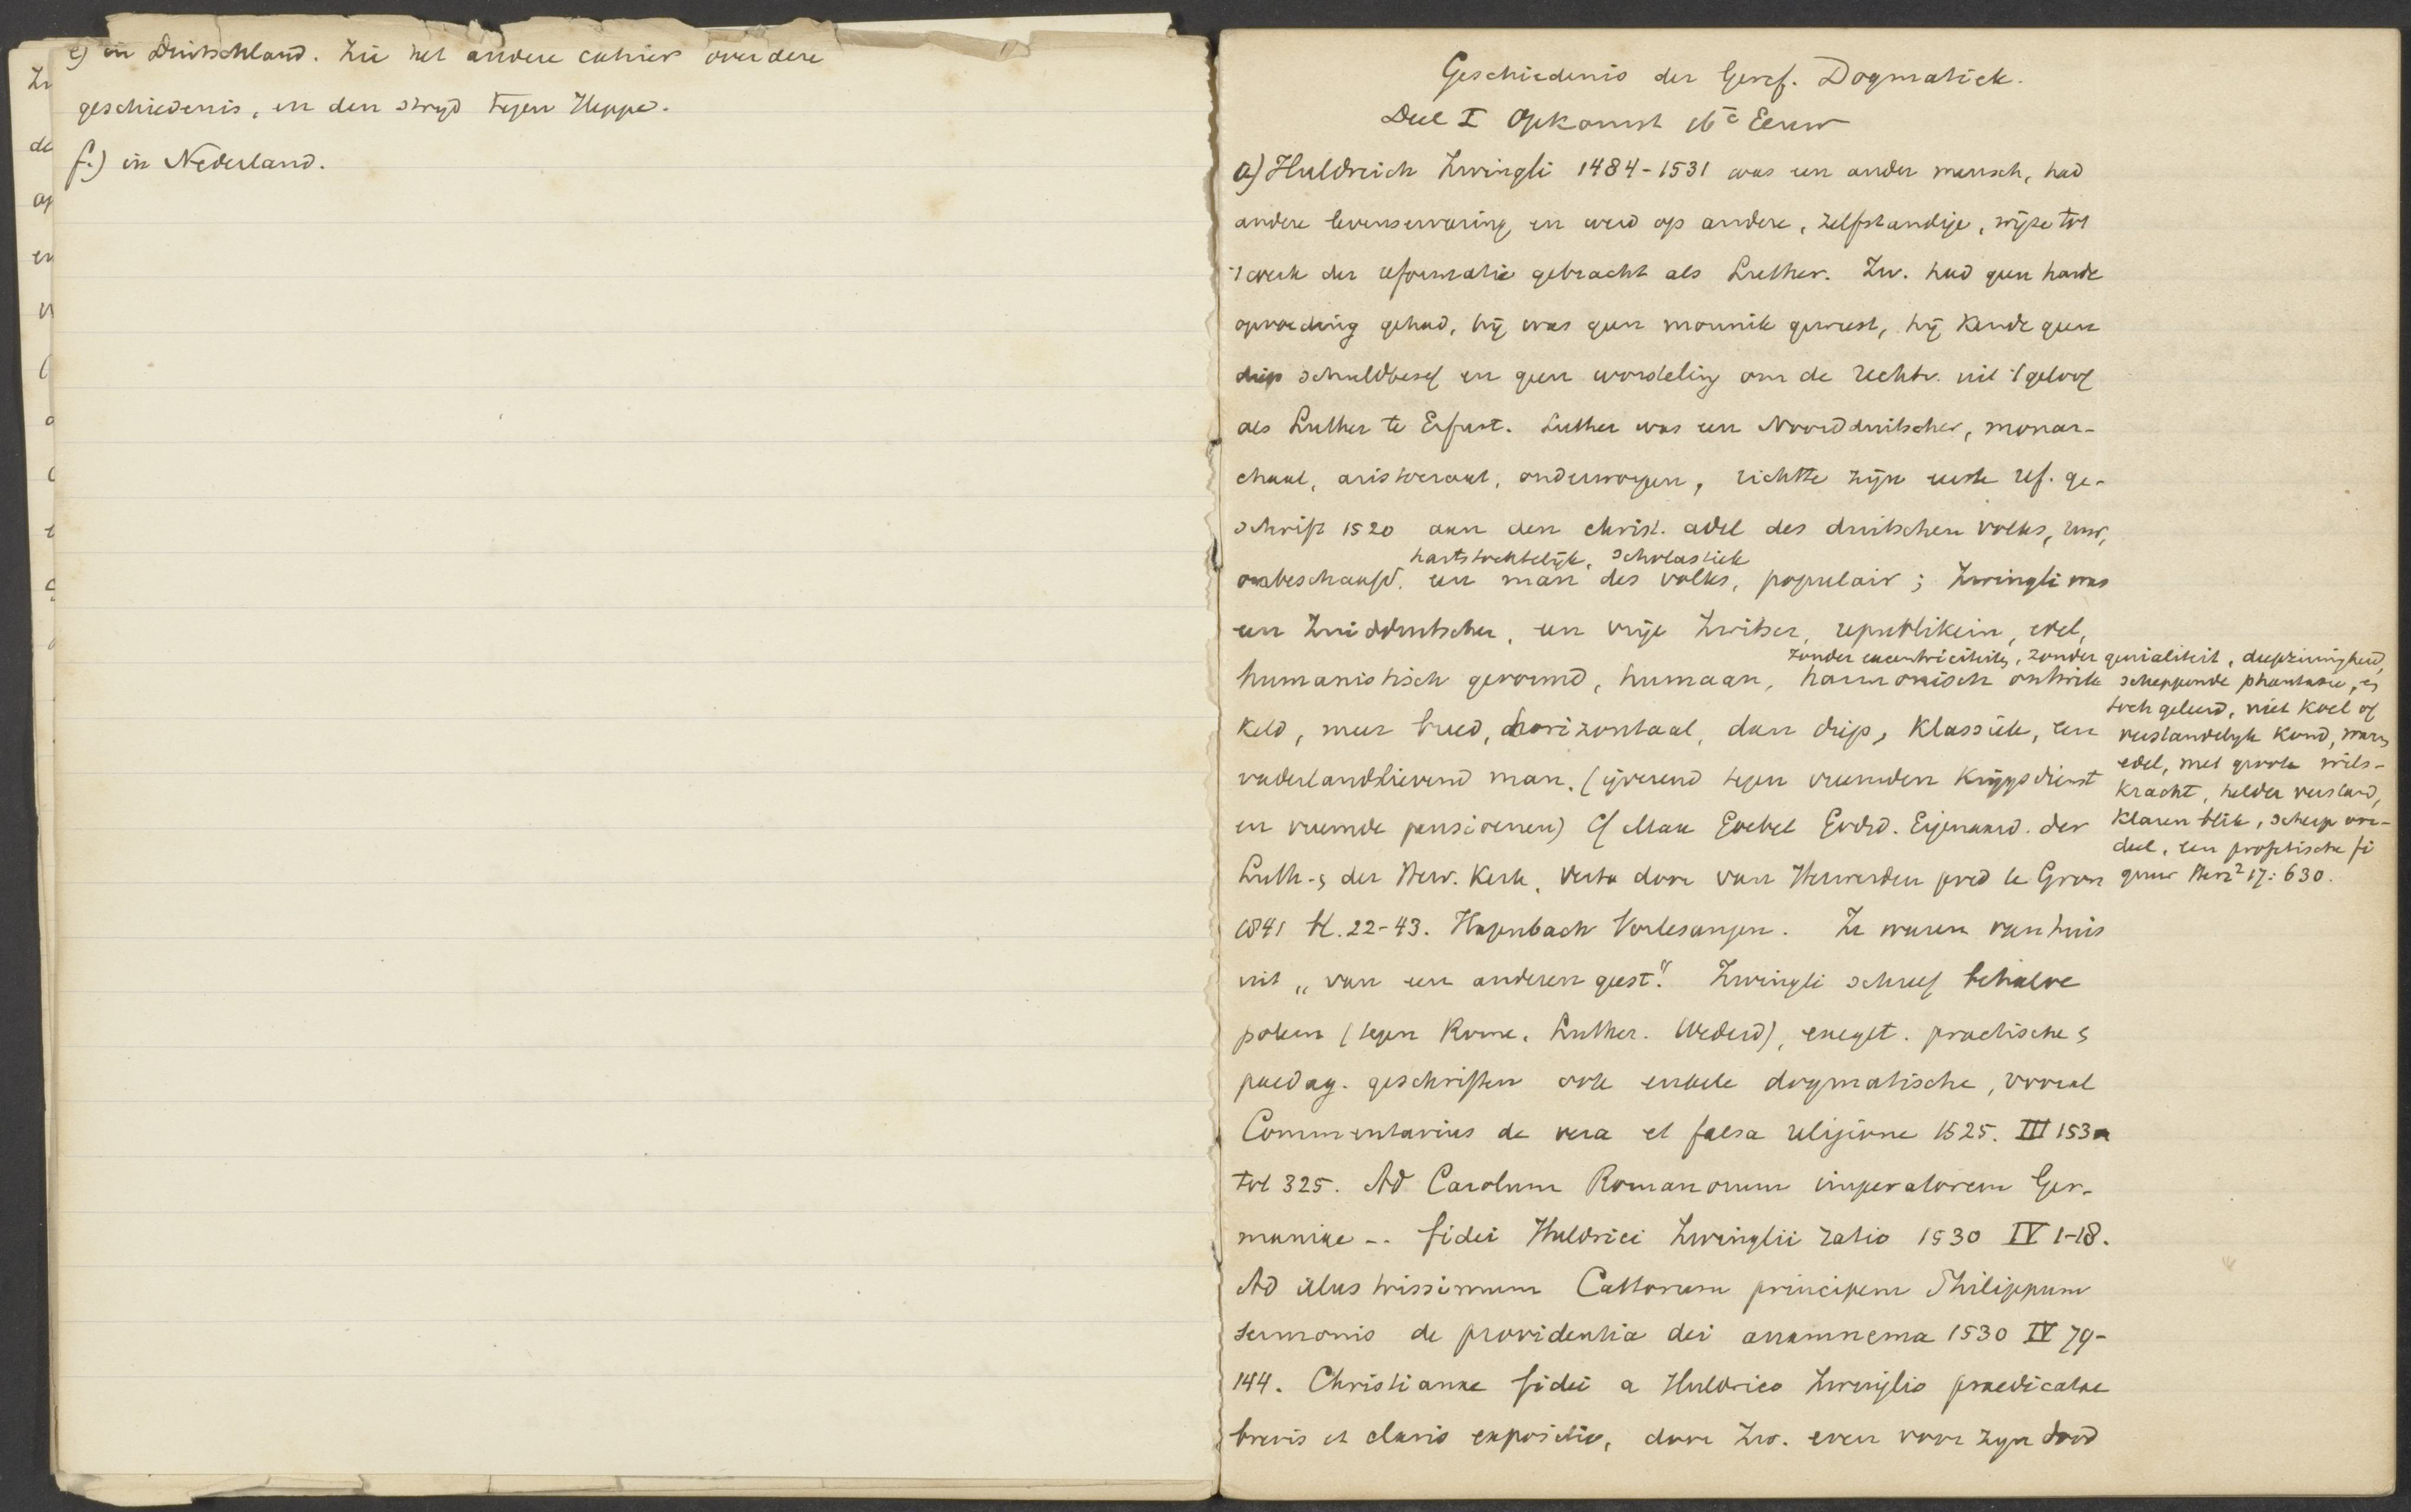 e) in Duitschland. Zie het andere cahier over deze
geschiedenis, en den strijd tegen Heppe.
f.) in Nederland.
Geschiedenis der Geref. Dogmatiek.
Deel I Opkomst 16e Eeuw
a) Huldreich Zwingli 1484-1531 was een ander mensch, had
andere levenservaring en werd op andere, zelfstandige, wijze tot
't werk der reformatie gebracht als Luther. Zw. had geen harde
opvoeding gehad, hij was geen monnik geweest, hij kende geen
diep schuldbesef en geen worsteling om de rechtv. uit 't geloof
als Luther te Erfurt. Luther was een Noordduitscher, monar-
chaal, aristocraat, onderworpen, richtte zijn eerste ref. ge-
schrift 1520 aan den christ. adel des duitschen volks, ruw,
hartstochtelijk, scholastiek
onbeschaafd, een man des volks, populair; Zwingli was
een Zuidduitscher, een vrije Zwitser, republikein, edel,
humanistisch gevormd, humaan, harmonisch ontwik
keld, meer breed, horizontaal, dan diep, klassiek, een
vaderlandlievend man. (ijverend tegen vreemden krijgsdienst
en vreemde pensioenen) Cf Max Goebel Godsd. Eigenaard. der
Luth. en der Herv. Kerk, vert. door van Herwerden pred te Gron
1841 bl. 22-43. Hagenbach Vorlesungen. Ze waren van huis
uit „van een anderen geest". Zwingli schreef behalve
polem (tegen Rome, Luther. Wederd), exeget. practische en
paedag. geschriften ook enkele dogmatische, vooral
Commentarius de vera et falsa religione 1525. III 153
tot 325. Ad Carolum Romanorum imperatorem Ger-
maniae -. fidei Huldrici Zwinglii ratio 1530 IV 1-18.
Ad illustrissimum Cattorum principem Philippum
sermonis de providentia dei anamnema 1530 IV 79-
144. Christianae fidei a Huldrico Zwinglio praedicatae
brevis et clara expositio, door Zw. even voor zijn dood
zonder excentriciteit, zonder genialiteit, diepzinnigheid,
scheppende phantasie, en
toch geleerd, niet koel of
verstandelijk koud, warm
edel, met groote wils-
kracht, helder verstand,
klaren blik, scherp oor-
deel, een profetische fi
guur Herz² 17: 630.